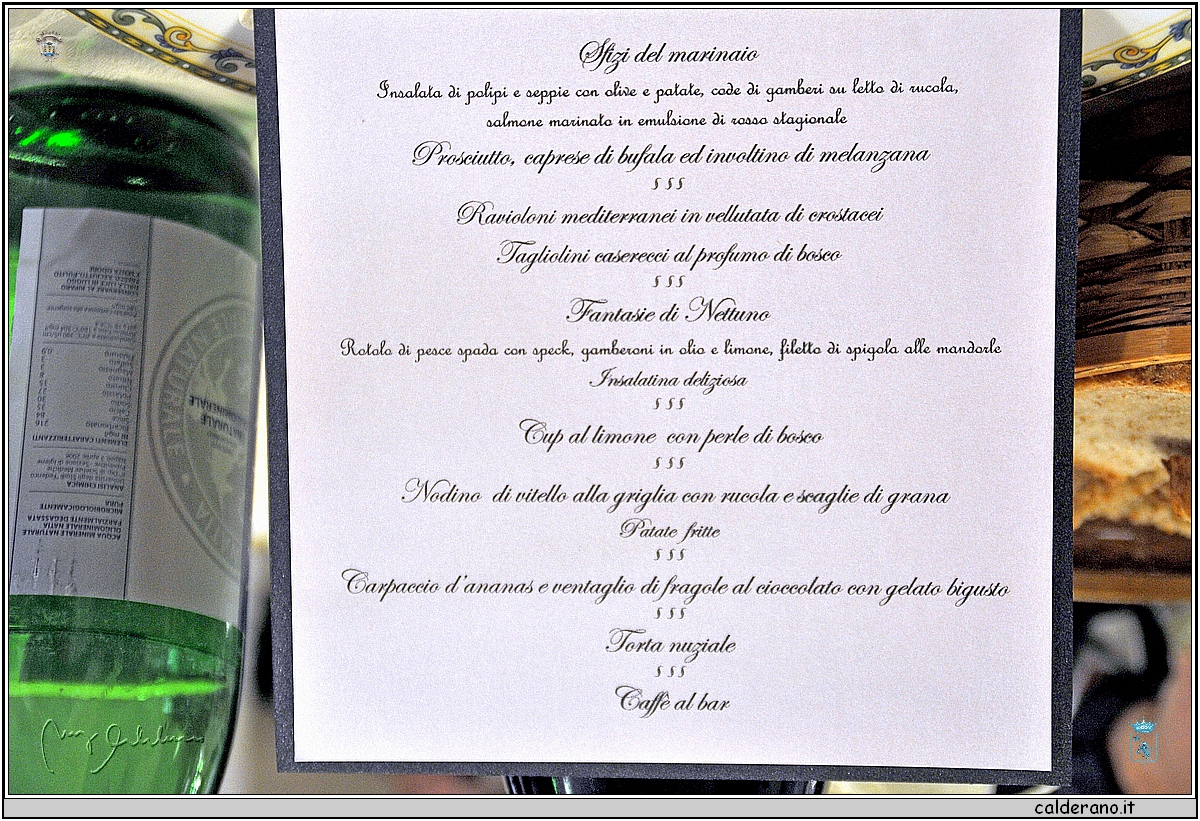 Sfizi del marinaio
Insalata di polipi e seppie con olive e patate, code di gamberi su letto di rucola,
salmone marinato in emulsione di rosso stagionale
Prosciutto, caprese di bufala ed involtino di melanzana
§ § §
Ravioloni mediterranei in vellutata di crostacei
Tagliolini caserecci al profumo di bosco
§ § §
Fantasie di Nettuno
Rotolo di pesce spada con speck, gamberoni in olio e limone, filetto di spigola alle mandorle
Insalatina deliziosa
§ § §
Cup al limone con perle di bosco
§ § §
Nodino di vitello alla griglia con rucola e scaglie di grana
Patate fritte
§ § §
Carpaccio d'ananas e ventaglio di fragole al cioccolato con gelato bigusto
§ § §
Torta nuziale
§ § §
Caffè al bar
ACQUA MINERALE NATURALE
OLIGOMINERALE NATIA
PARZIALMENTE DEGASSATA
MICROBIOLOGICAMENTE
PURA
ANALISI CHIMICA
ELEMENTI CARATTERIZZANTI
NATURALE
calderano.it